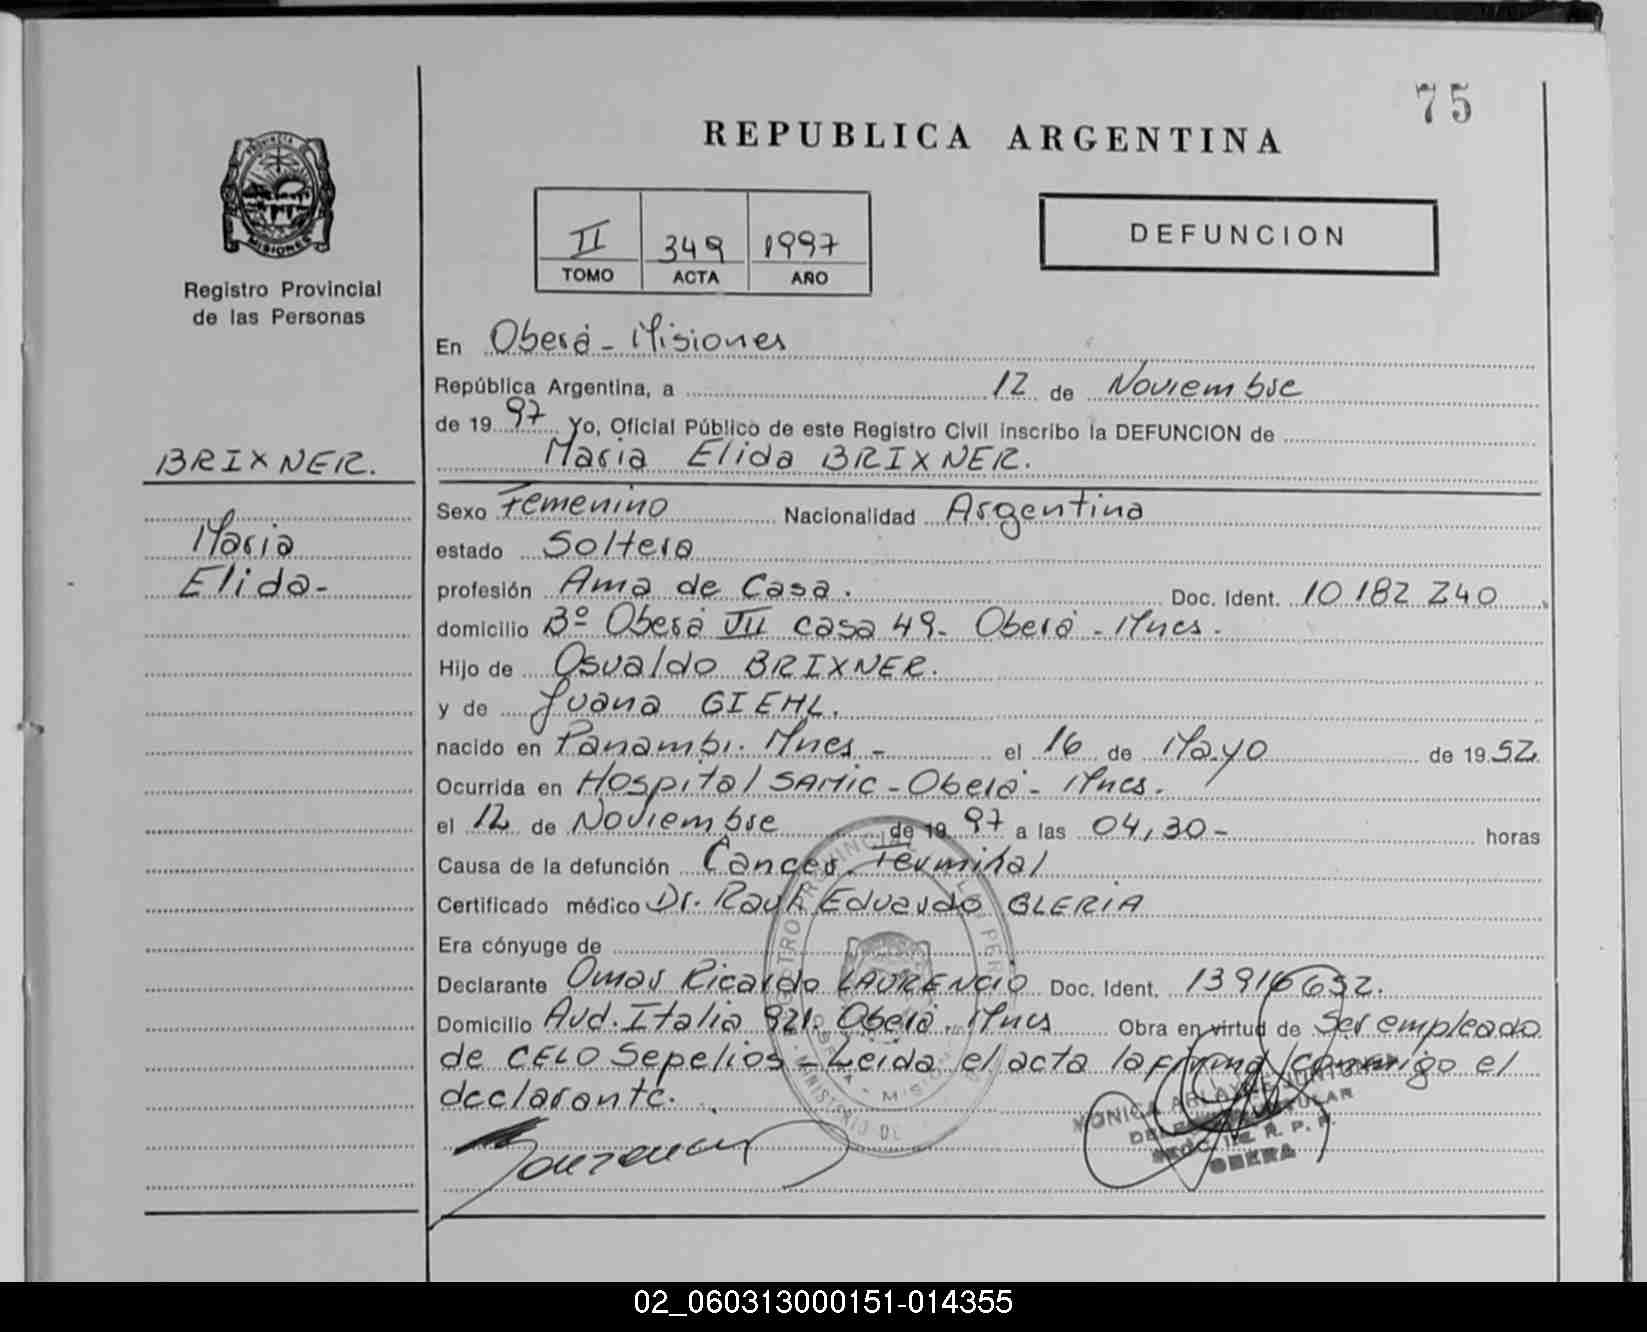 75
REPUBLICA ARGENTINA
PROVINCIA DE
MISIONES
Registro Provincial
de las Personas
II 349 1997
TOMO ACTA AÑO
DEFUNCION
En Oberá - Misiones
República Argentina, a 12 de Noviembre
de 19 97 Yo, Oficial Público de este Registro Civil inscribo la DEFUNCION de
Maria Elida BRIXNER.
BRIXNER.
Maria
Elida-
Sexo Femenino Nacionalidad Argentina
estado Soltera
profesión Ama de Casa. Doc. Ident. 10 182 240
domicilio Bº Oberá VII casa 49- Oberá - Mnes.
Hijo de Osvaldo BRIXNER.
y de Juana GIEHL.
nacido en Panambi. Mnes - el 16 de Mayo de 19 52
Ocurrida en Hospital SAMIC - Oberá - Mnes.
el 12 de Noviembre de 19 97 a las 04,30 - horas
Causa de la defunción Cancer Terminal
Certificado médico Dr. Raul Eduardo GLERIA
Era cónyuge de
Declarante Omar Ricardo LAURENCIO Doc. Ident. 13916652.
Domicilio Avd. Italia 921. Oberá. Mnes Obra en virtud de Ser empleado
de CELO Sepelios - Leida el acta la firma conmigo el
declarante.
MONICA
OBERA
02_060313000151-014355